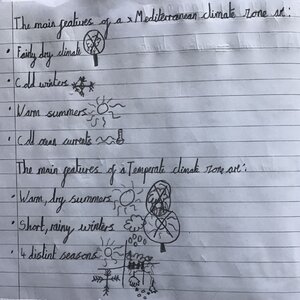 The main features of a Mediterranean climate zone are:
• Fairly dry climate
• Cold winters
• Warm summers
• Cold ocean currents
The main features of a Temperate climate zone are:
• Warm, dry summers
• Short, rainy winters
• 4 distint seasons